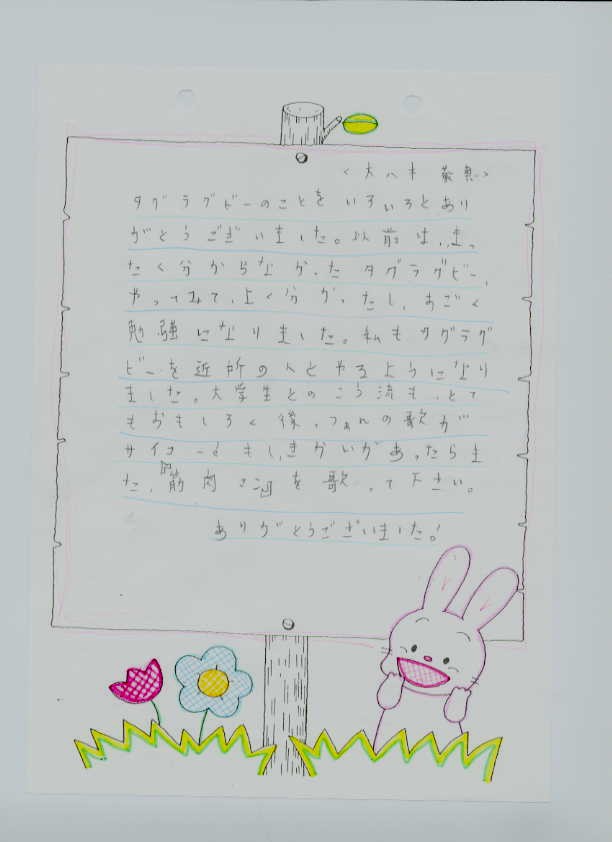 <大八木
タグラグビーのことをいろいろとあり
がとうございました。以前は、まっ
たく分からなかったタグラグビー、
やってみて、よく分かったし、すごく
勉強になりました。私もタグラグ
ビーを近所の人とやるようになり
ました。大学生とのこう流も、とて
もおもしろく の歌が
サイコー もし、きかいがあったらま
た、筋肉 を歌って下さい。
ありがとうございました!